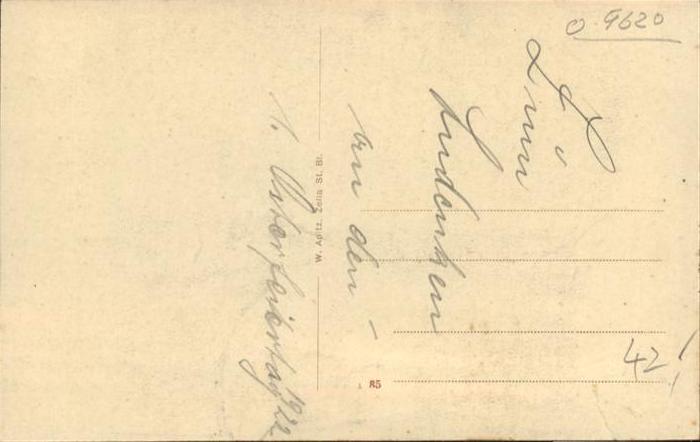 0.9620
Zum
Andenken
an den –
1. Osterfeiertag 1922
W. Apitz, Zella St. Bl.
42
85